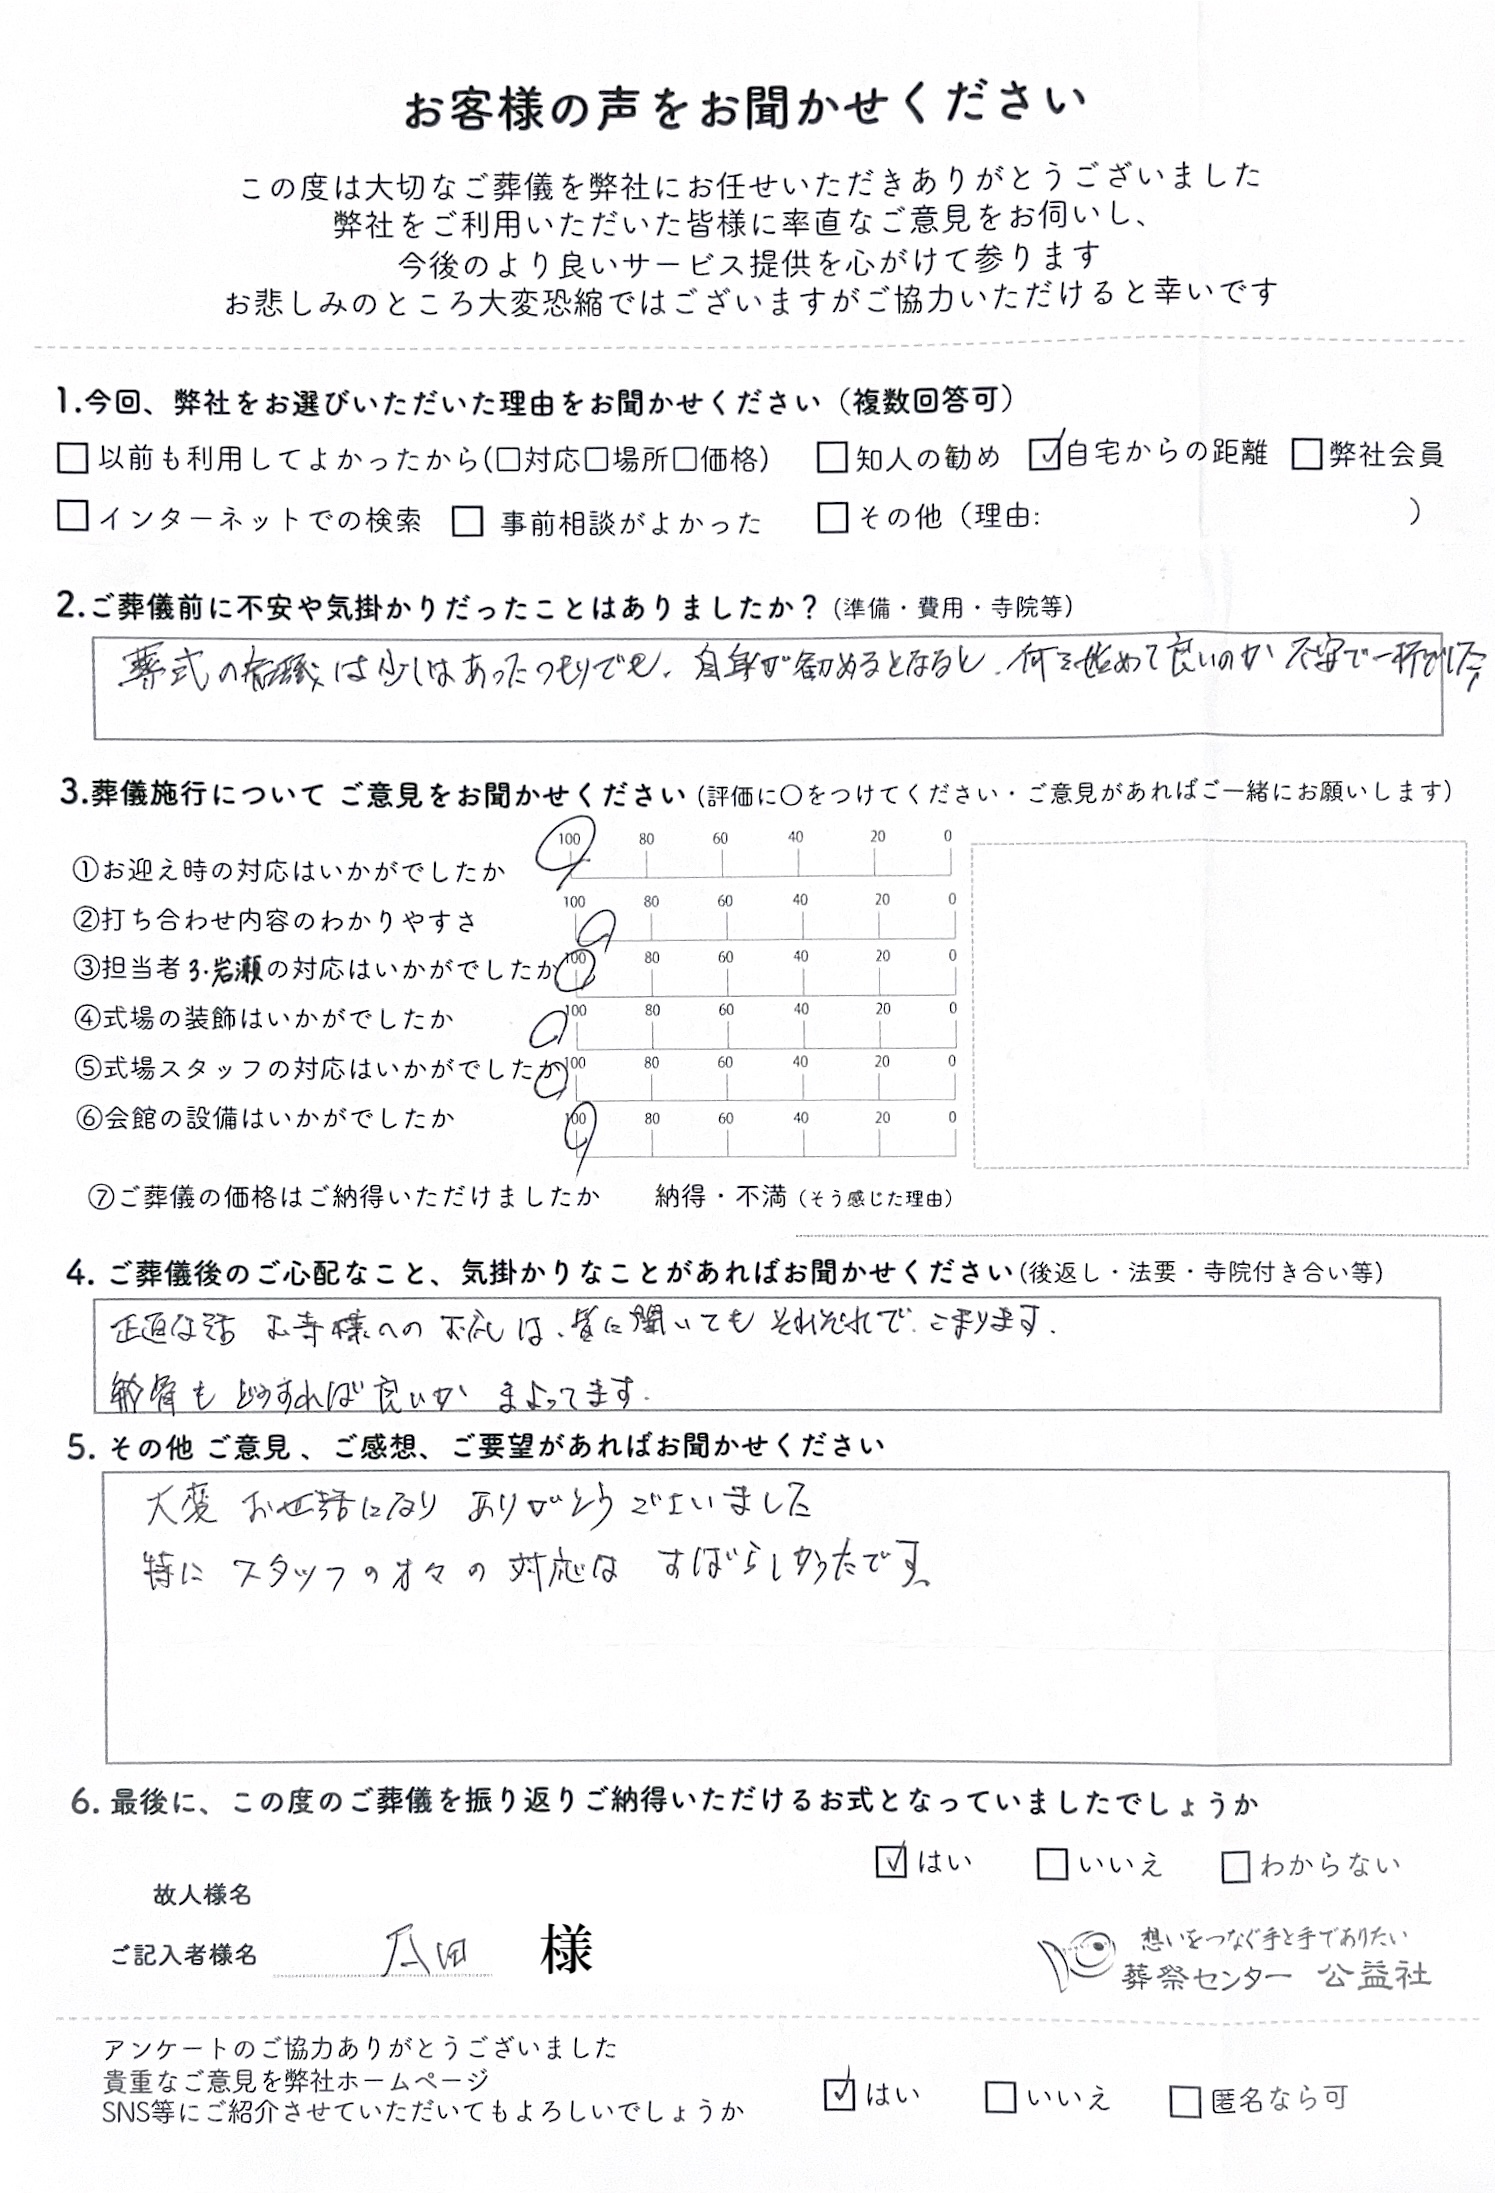 お客様の声をお聞かせください
この度は大切なご葬儀を弊社にお任せいただきありがとうございました
弊社をご利用いただいた皆様に率直なご意見をお伺いし、
今後のより良いサービス提供を心がけて参ります
お悲しみのところ大変恐縮ではございますがご協力いただけると幸いです
1.今回、弊社をお選びいただいた理由をお聞かせください（複数回答可）
□以前も利用してよかったから(□対応□場所□価格) □知人の勧め ☑自宅からの距離 □弊社会員
□インターネットでの検索 □ 事前相談がよかった □その他（理由: ）
2.ご葬儀前に不安や気掛かりだったことはありましたか？(準備・費用・寺院等)
葬式の知識は少しはあったつもりでも、自身が勧めるとなると、何を始めて良いのか 不安で一杯でした
3.葬儀施行について ご意見をお聞かせください(評価に〇をつけてください・ご意見があればご一緒にお願いします)
①お迎え時の対応はいかがでしたか 100 80 60 40 20 0
②打ち合わせ内容のわかりやすさ 100 80 60 40 20 0
③担当者 岩瀬の対応はいかがでしたか 100 80 60 40 20 0
④式場の装飾はいかがでしたか 100 80 60 40 20 0
⑤式場スタッフの対応はいかがでしたか 100 80 60 40 20 0
⑥会館の設備はいかがでしたか 100 80 60 40 20 0
⑦ご葬儀の価格はご納得いただけましたか 納得・不満（そう感じた理由）
4. ご葬儀後のご心配なこと、気掛かりなことがあればお聞かせください(後返し・法要・寺院付き合い等)
正直な話 お寺様への お礼は、皆に聞いても それぞれで、こまります.
納骨も どうすれば良いか まよってます.
5. その他 ご意見、ご感想、ご要望があればお聞かせください
大変 お世話になり ありがとうございました
特に スタッフの方々の 対応は すばらしかったです。
6. 最後に、この度のご葬儀を振り返りご納得いただけるお式となっていましたでしょうか
☑はい □いいえ □わからない
故人様名
ご記入者様名 様
想いをつなぐ手と手でありたい
葬祭センター 公益社
アンケートのご協力ありがとうございました
貴重なご意見を弊社ホームページ
SNS等にご紹介させていただいてもよろしいでしょうか
☑はい □いいえ □匿名なら可